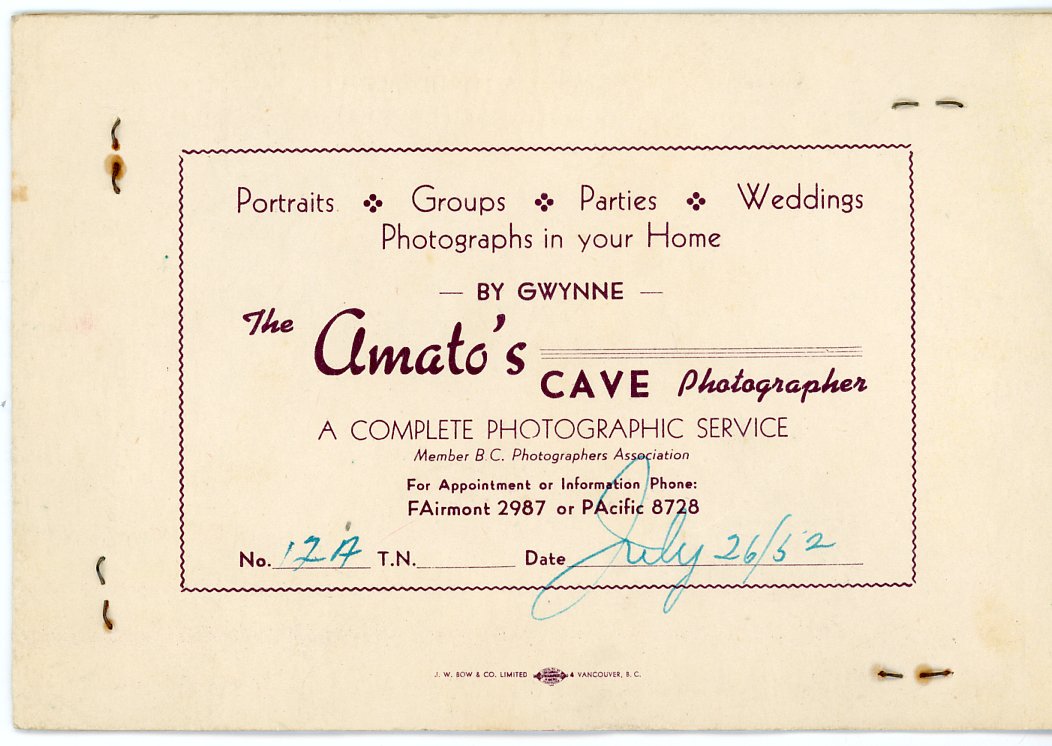 Portraits Groups Parties Weddings
Photographs in your Home
— BY GWYNNE —
The Amato's
CAVE Photographer
A COMPLETE PHOTOGRAPHIC SERVICE
Member B.C. Photographers Association
For Appointment or Information Phone:
FAirmont 2987 or PAcific 8728
No. 12A T.N. Date July 26/52
J. W. BOW & CO. LIMITED 4 VANCOUVER, B. C.